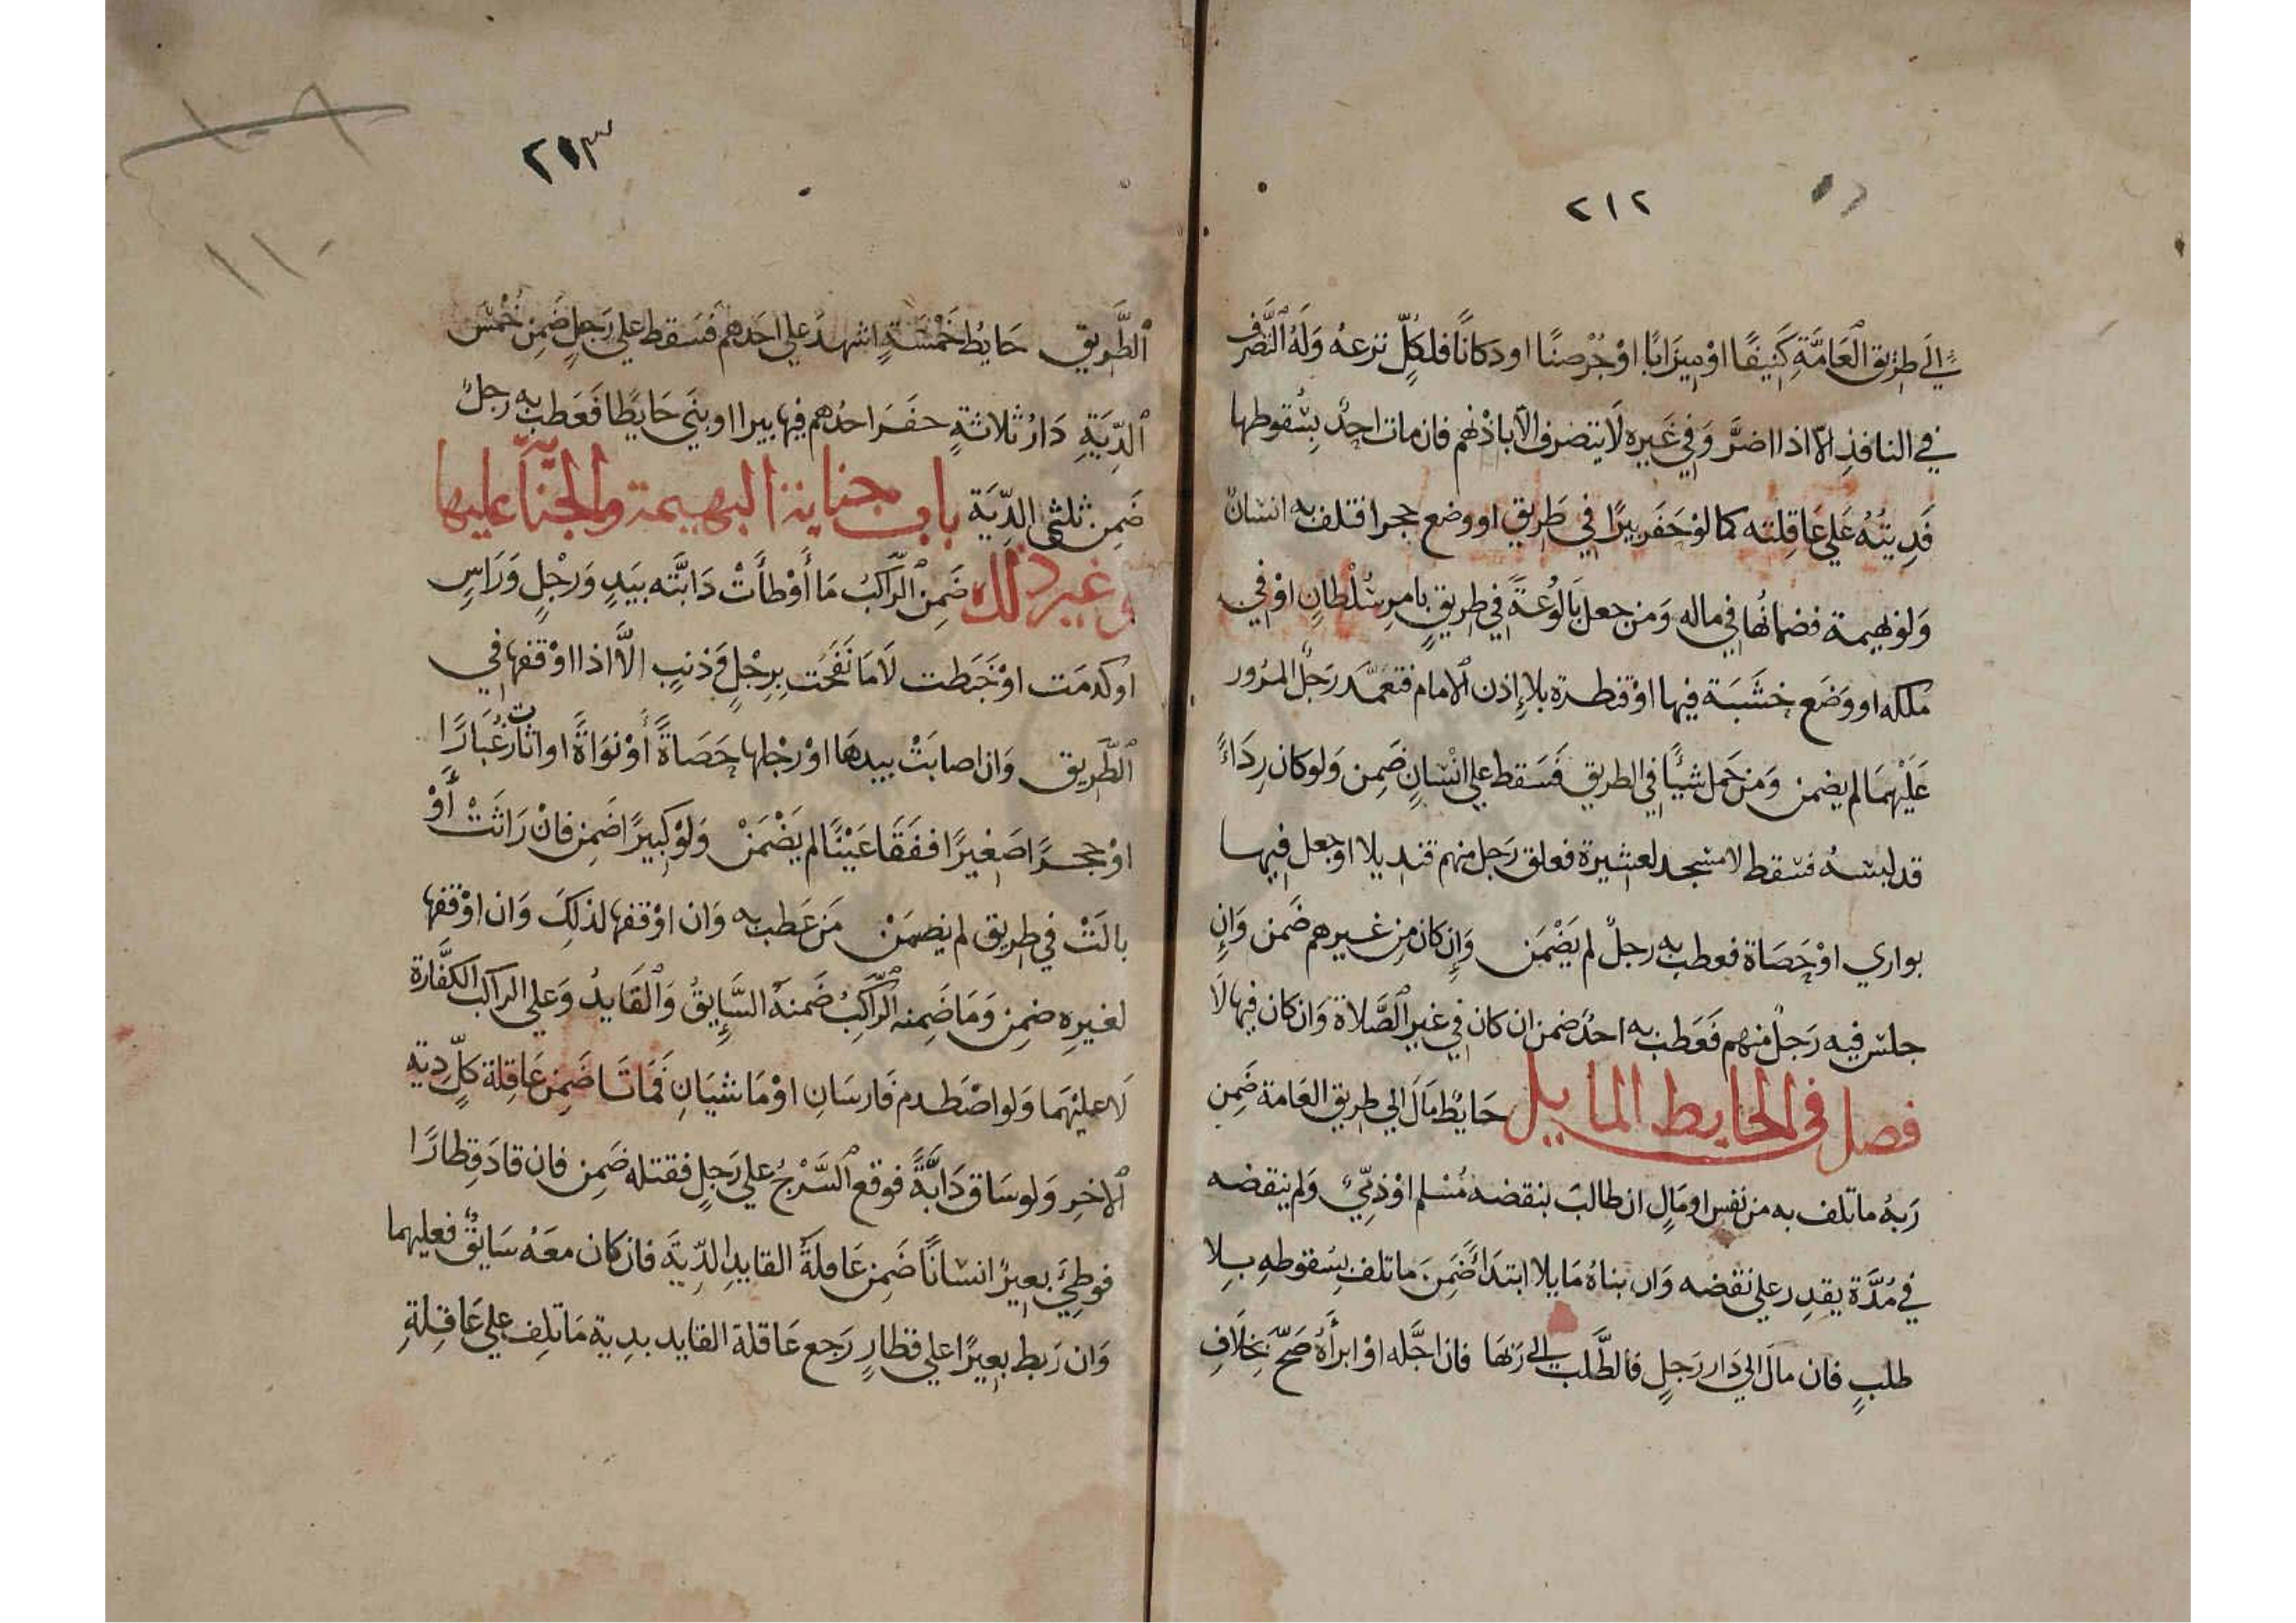 ٢١٢
إلَى طَرِيق الْعَامَّةِ كَنِيفًا اوْ مِيزَابًا اوْ جُرْصنًا او دكانًا فلكُلّ نزعهُ وَلَهُ التَّصَرُّف
في النافذِ الّا اذا اضرَّ وَفي غَيره لَا يتصرف الّا باذْنهم فان مات احدٌ بِسُقوطها
فَدِيَتُهُ عَلي عَاقِلته كما لوْ حَفَر بيرًا في طَرِيق او وضع حجرا فتلف به انسانٌ
وَلوْ بهيمة فضمانُها في ماله وَمن جعل بَالُوعَةً في طريقٍ بامرِ سُلْطانٍ اوْ في
ملكه او وَضَع خشَبَة فيها اوْ قنطرة بلا إذن الامام فتعَمَّد رَجلٌ المرُور
عَلَيْهمَا لم يضمن وَمَن حَمل شيْأً في الطريق فَسَقط علي انْسانٍ ضَمِن وَلو كان رِدَاءً
قد لبسهُ فسقط لا مسْجد لعشيرة فعلق رَجل منهم قنديلا او جعل فيها
بواري اوْ حَصَاة فعطب به رجلٌ لم يَضْمَن وَإن كان من غيرهم ضَمن وَإن
جلس فيه رَجلٌ منهم فَعَطب به احدٌ ضمن ان كان في غير الصَّلاة وَان كان فيها لَا
فصل في الحايط المايل حَايطٌ مَالَ الي طريق العَامة ضَمِن
رَبهُ ما تلف به من نفس او مَالٍ ان طالبَ بنقضه مُسْلم اوْ ذمّيٌ وَلم ينقضه
في مُدَّة يقدِر علي نقْضه وَان بناهُ مَايلا ابتدَاءً ضَمِنَ ما تلف بِسُقوطهِ بلا
طلبٍ فان مال الي دَار رَجلٍ فالطَّلب إلي رَبّهَا فان اجَّله اوْ ابرأهُ صَحّ بخِلَافِ
٢١٣
١٠٩
١١٠
الطَّرِيق حَايُط خَمْسَةٍ اشهدَ علي احَدهم فسَقط علي رَجلٍ ضَمِن خُمْسَ
الدِّيَةِ دَارُ ثلاثةٍ حفَرَ احدُهم فيها بيرا او بنَي حَايطًا فَعَطبَ به رجلٌ
ضَمِن ثلثي الدِّيَة باب جناية البهيمة والجناية عليها
وغير ذلك ضَمِن الرَّاكبُ مَا أَوْطأَتْ دَابَّته بيَدٍ وَرجْلٍ وَرَاسٍ
اوكدمَت اوْ خَبَطت لَا مَا نَفَحَت بِرِجْلٍ وَذنبٍ الَّا اذا اوْقفها في
الطَّريق وَان اصابَتْ بيدهَا اوْ رجْلها حَصَاةً أوْ نوَاةً او اثارت غُبَارًا
اوْ حجرًا صَغيْرًا ففقَا عَيْنًا لم يَضْمَنْ وَلوْ كبيرًا ضَمِن فانْ رَاثَتْ أَوْ
بالَتْ في طريق لم يضمَنْ مَن عَطب به وَان اوْقفها لذلِكَ وَان اوْقفها
لغيرِه ضمِن وَمَا ضَمِنه الرَّاكبُ ضَمنهُ السَّايقُ وَالقَايدُ وَعلي الراكب الكفَّارة
لَا عليْهَما وَلو اصْطدم فَارسَانِ اوْ مَاشيَانِ فَمَاتَا ضَمِن عَاقِلة كلٍّ دِية
الاخرِ وَلو سَاق دَابَّةً فوقع السَّرْجُ علي رَجلٍ فقتله ضَمِن فان قادَ قِطارًا
فوطِئَ بعيرٌ انسانًا ضَمِن عَاقلةُ القايد الدِّيَة فان كان معَهُ سَايقٌ فعليهما
وَان رَبط بعيرًا علي قطارٍ رَجع عَاقلة القايد بدِية مَا تلِف علي عَاقلةِ